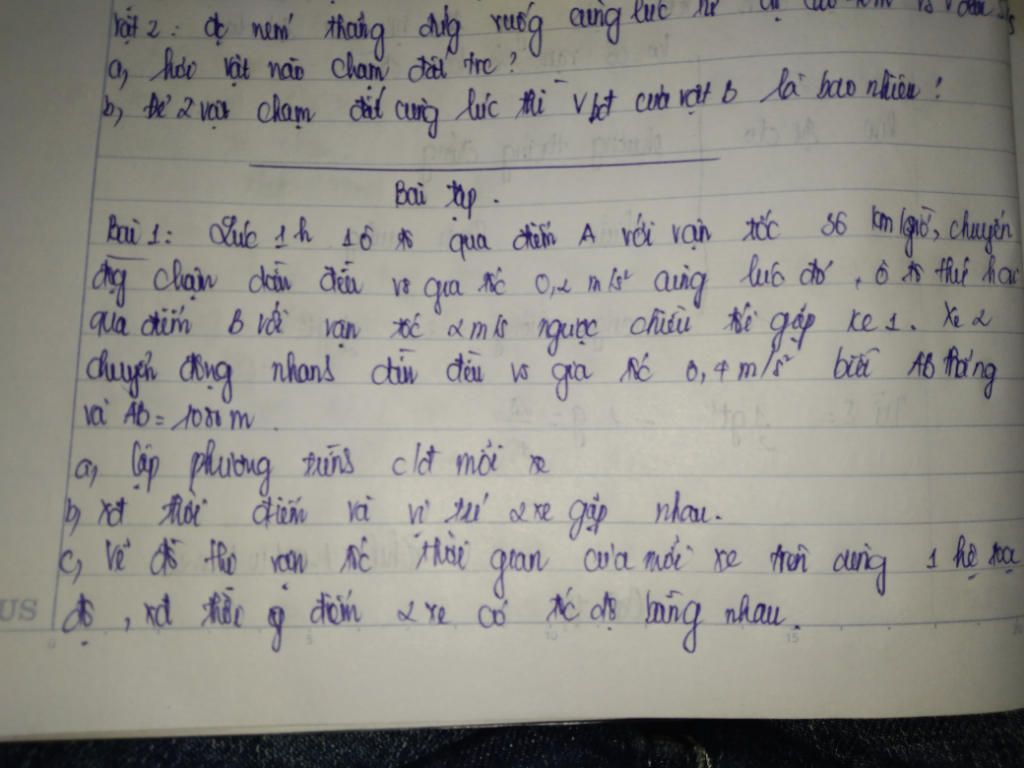 vật 2: đc ném thẳng đứng xuống cùng lúc
a, hỏi vật nào chạm đất trc?
b, Để 2 vật chạm đất cùng lúc thì Vbđ của vật B là bao nhiêu?
Bài tập.
Bài 1: Lúc 1h 1 ô tô qua điểm A với vận tốc 36 km/giờ, chuyển
động chậm dần đều vs gia tốc 0,2 m/s² cùng lúc đó, ô tô thứ hai
qua điểm B với vận tốc 2m/s ngược chiều tới gặp xe 1. Xe 2
chuyển động nhanh dần đều vs gia tốc 0,4 m/s² biết AB thẳng
và AB = 1080 m.
a, lập phương trình c/đ mỗi xe
b, xđ thời điểm và vị trí 2 xe gặp nhau.
c, vẽ đồ thị vận tốc thời gian của mỗi xe trên cùng 1 hệ toạ
độ, xđ thời điểm 2 xe có tốc độ bằng nhau.
US
0 5 10 15